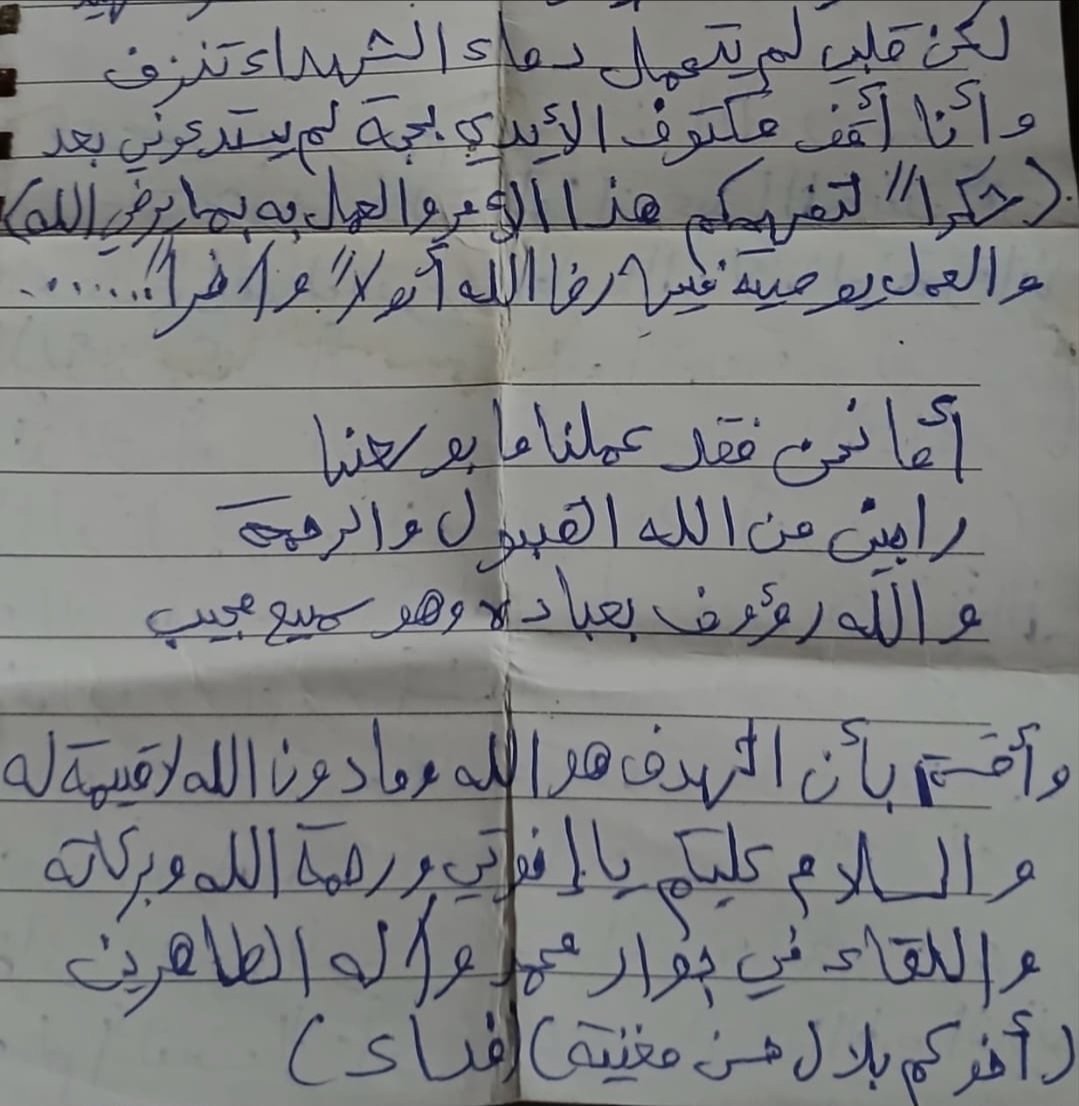 لكن قلبي لم يتحمل دماء الشهداء تنزف
وأنا أقف مكتوف الأيدي بحجة لم يستدعوني بعد
(شكراً لتفهمكم هذا الأمر والعمل به بما يرضي الله)
والعمل بوصيته فيها رضا الله أولاً وآخراً.......
أما نحن فقد عملنا ما بوسعنا
راجين من الله القبول والرحمة
والله رؤوف بعباده وهو سميع مجيب
وأقسم بأن الهدف هو الله وما دون الله لا قيمة له
والسلام عليكم يا إخوتي ورحمة الله وبركاته
واللقاء في جوار محمد وآله الطاهرين
(أخوكم بلال حسن مغنية) (فداء)